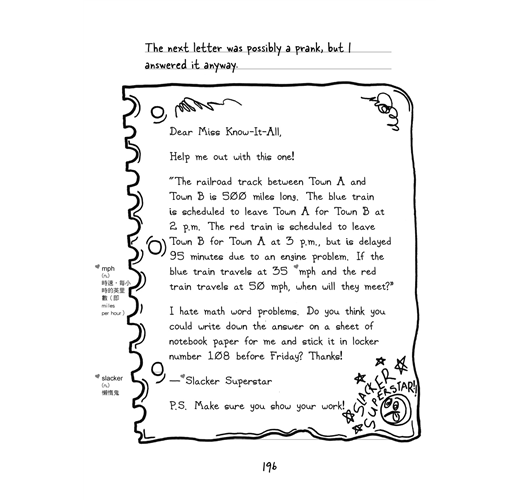 The next letter was possibly a prank, but I
answered it anyway.
Dear Miss Know-It-All,
Help me out with this one!
"The railroad track between Town A and
Town B is 500 miles long. The blue train
is scheduled to leave Town A for Town B at
2 p.m. The red train is scheduled to leave
Town B for Town A at 3 p.m., but is delayed
95 minutes due to an engine problem. If the
blue train travels at 35 *mph and the red
train travels at 50 mph, when will they meet?"
I hate math word problems. Do you think you
could write down the answer on a sheet of
notebook paper for me and stick it in locker
number 108 before Friday? Thanks!
—*Slacker Superstar
P.S. Make sure you show your work!
SLACKER
SUPERSTAR!
*mph
(n.)
時速,每小
時的英里
數(即
miles
per hour)
*slacker
(n.)
懶惰鬼
196